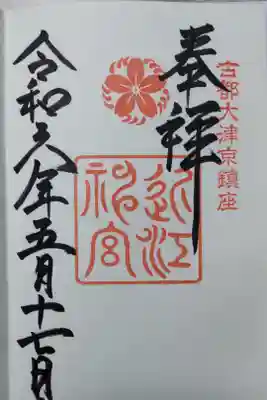 古都大津京鎮座
奉拝
近江神宮
令和六年五月十七日